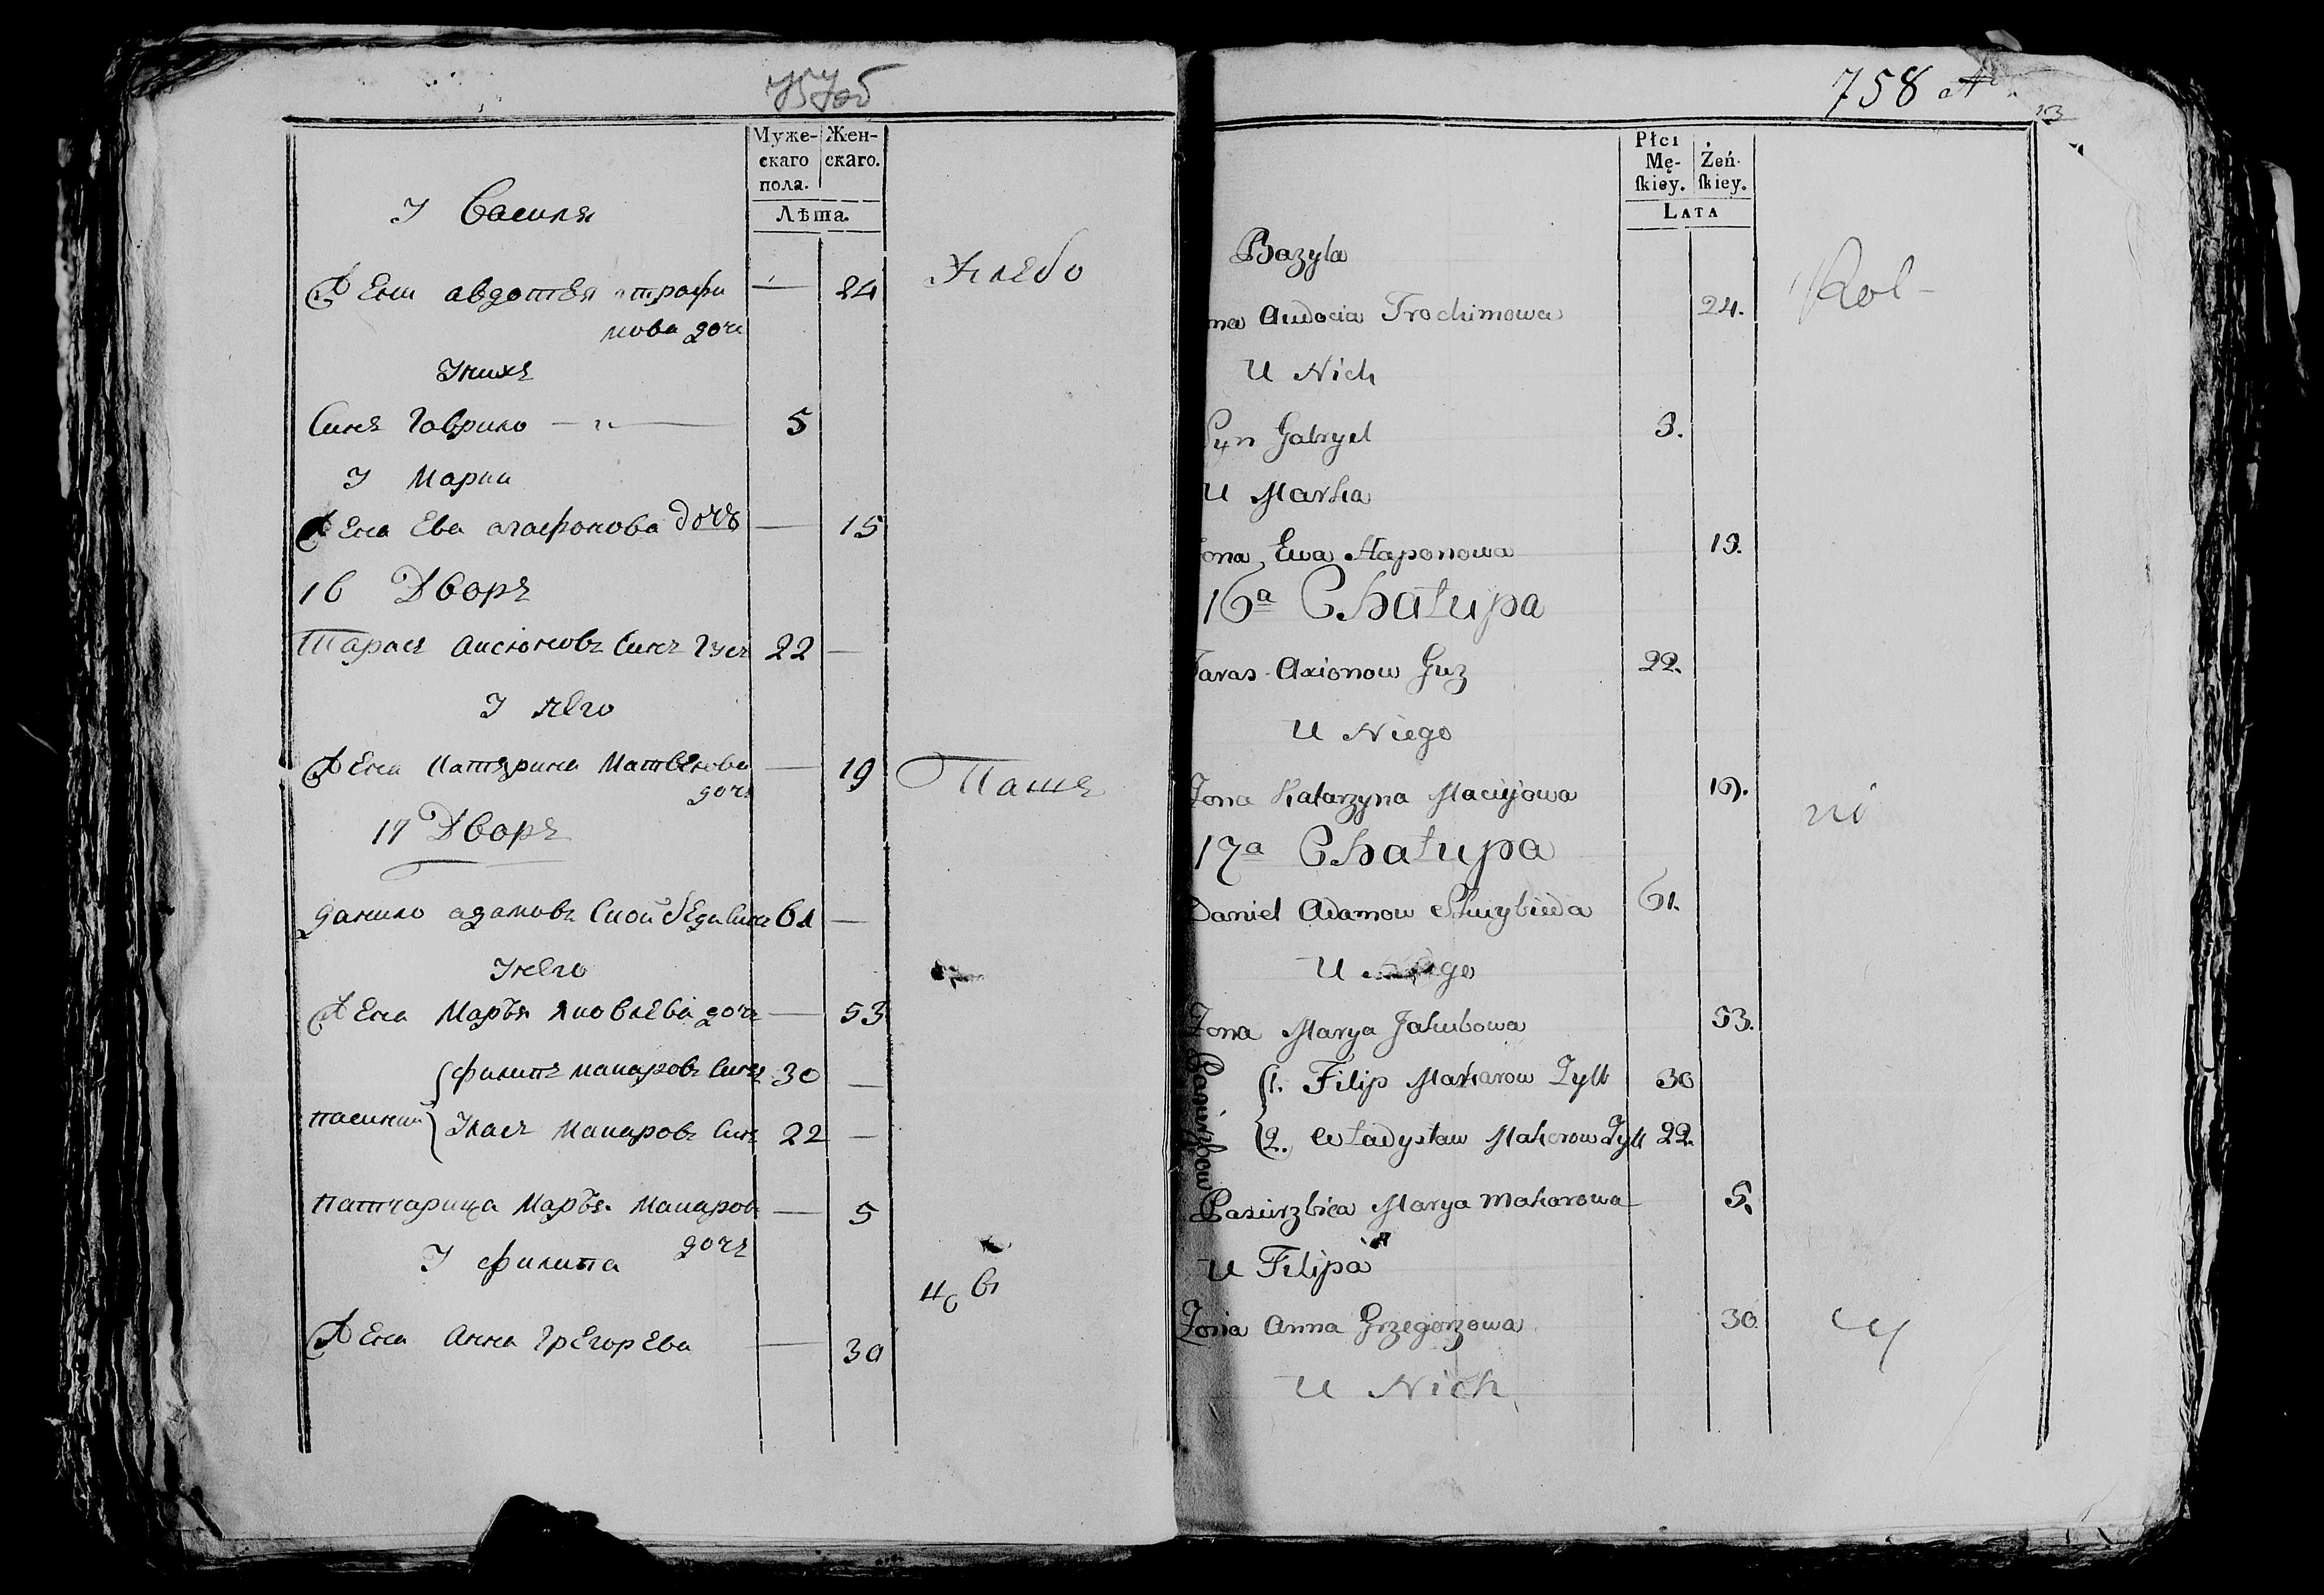 Муже-
скаго
пола.
Жен-
скаго.
Лѣта.
У Василя
Жена авдотья трофи
мова доч
24
Хлебо
Унихъ
Синъ Гаврило
5
У Марка
Жена Ева агафонова дочъ
15
16 Дворъ
Тарасъ Аксюновъ Синъ Гузъ
22
У него
Жена Катярина Матвеюва
дочъ
19
Паше
17 Дворъ
данило адамовъ Скойбеда Синъ
61
Унего
Жена Маръя Яковлева дочъ
53
филипъ макаровъ Синъ
30
пасинки
Улась Макаровъ Синъ
22
патчарица Маръя Макаров
дочъ
5
У филипа
цовъ
Жена Анна Грегорева
30
758
13
Płci
Mę-
skiey.
Żeń-
skiey.
LATA
Bazyla
ona Audocia Trochimowa
24.
Rol-
U Nich
Syn Gabryel
3.
U Marka
Zona Ewa Haponowa
15.
16a Chałupa
Taras Axionow Guz
22.
U Niego
Zona Katarzyna Maciyjowa
19.
ni
17a Chałupa
Daniel Adamow Skuybieda
61.
U Niego
Zona Marya Jakubowa
53.
Pasierzbow
1. Filip Makarow Zyll
30
2. Władysław Makarow Zyll
22.
Pasierzbica Marya Makarowa
5.
U Filipa
Zona Anna Grzegorzowa
30
cy
U Nich